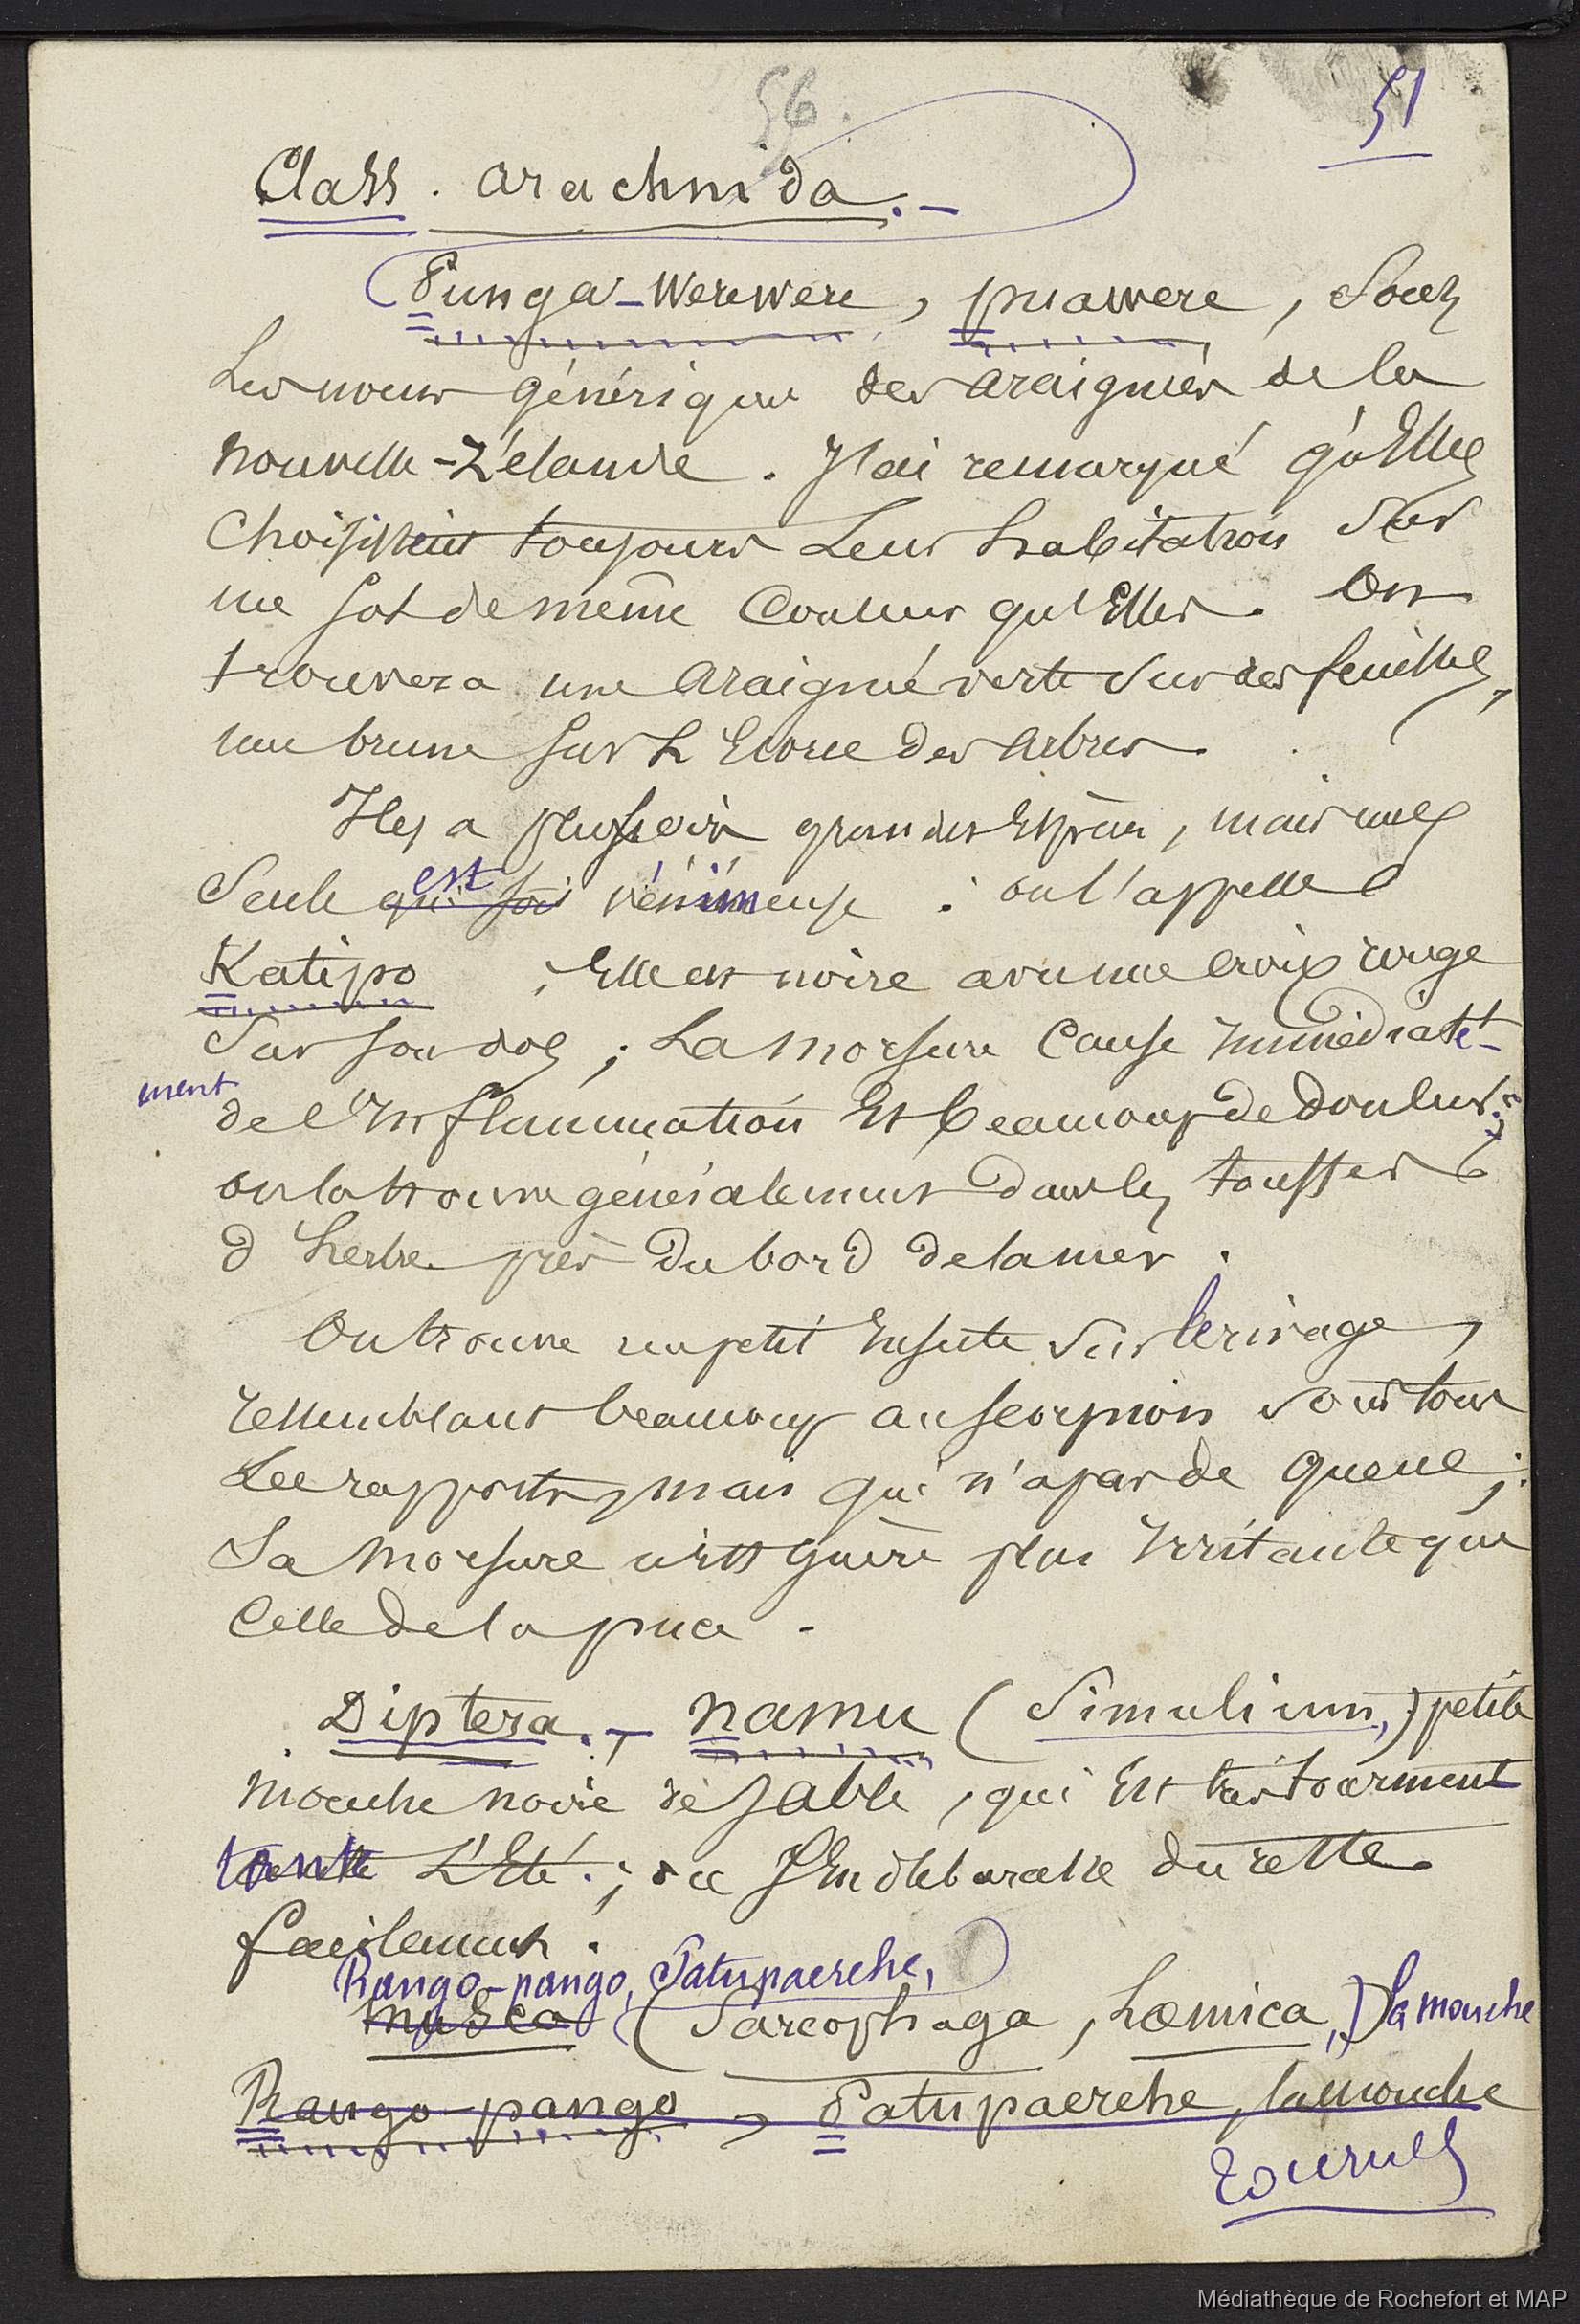 56.
51
Class. arachnida.-
Punga-Werewere, puawere, Sont
Les noms génériques des araignées de la
Nouvelle-Zélande. J'ai remarqué qu'Elles
Choisissent toujours Leur habitation sur
un sol de même Couleur qu'Elles. On
trouvera une araignée verte sur des feuilles,
une brune sur L'Ecorce des arbres.
Il y a plusieurs grandes Espèces, mais une
est
Seule qui soit vénimeuse : on l'appelle
Katipo ; Elle est noire avec une Croix rouge
Sur son dos ; La Morsure Cause Immédiate-
ment
de l'Inflammation Et beaucoup de Douleur ;
on la trouve généralement dans les touffes
d'herbe près du bord de la mer.
On trouve un petit Insecte sur le rivage,
ressemblant beaucoup au scorpion sous tous
Les rapports, mais qui n'a pas de queue ;
Sa Morsure n'est guère plus Irritante que
Celle de la puce.
Diptera.- Namu (Simulium,) petite
Mouche noire de sable, qui Est très tourment
tante L'Eté ; on s'en débarasse du reste
facilement.
Rango-pango, Patupaerehe,
Musca (Sarcophaga, Lœmica,) la mouche
Rango-pango, Patupaerehe, la mouche
Tournez